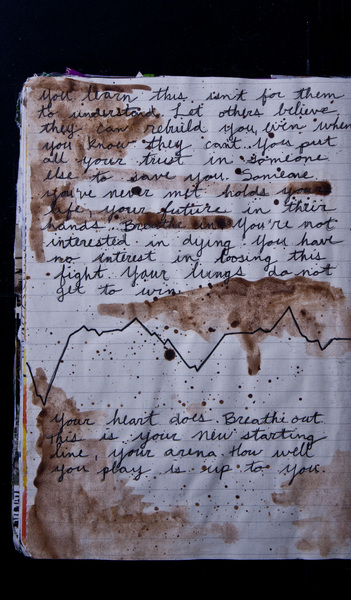 you learn this isn't for them
to understand. Let others believe
they can rebuild you, even when
you know they can't. You put
all your trust in someone
else to save you. Someone
you've never met holds your
life, your future in their
hands. Breathe in. You're not
interested in dying. You have
no interest in loosing this
fight. Your lungs do not
get to win.
Your heart does. Breathe out.
This is your new starting
line, your arena. How well
you play is up to you.